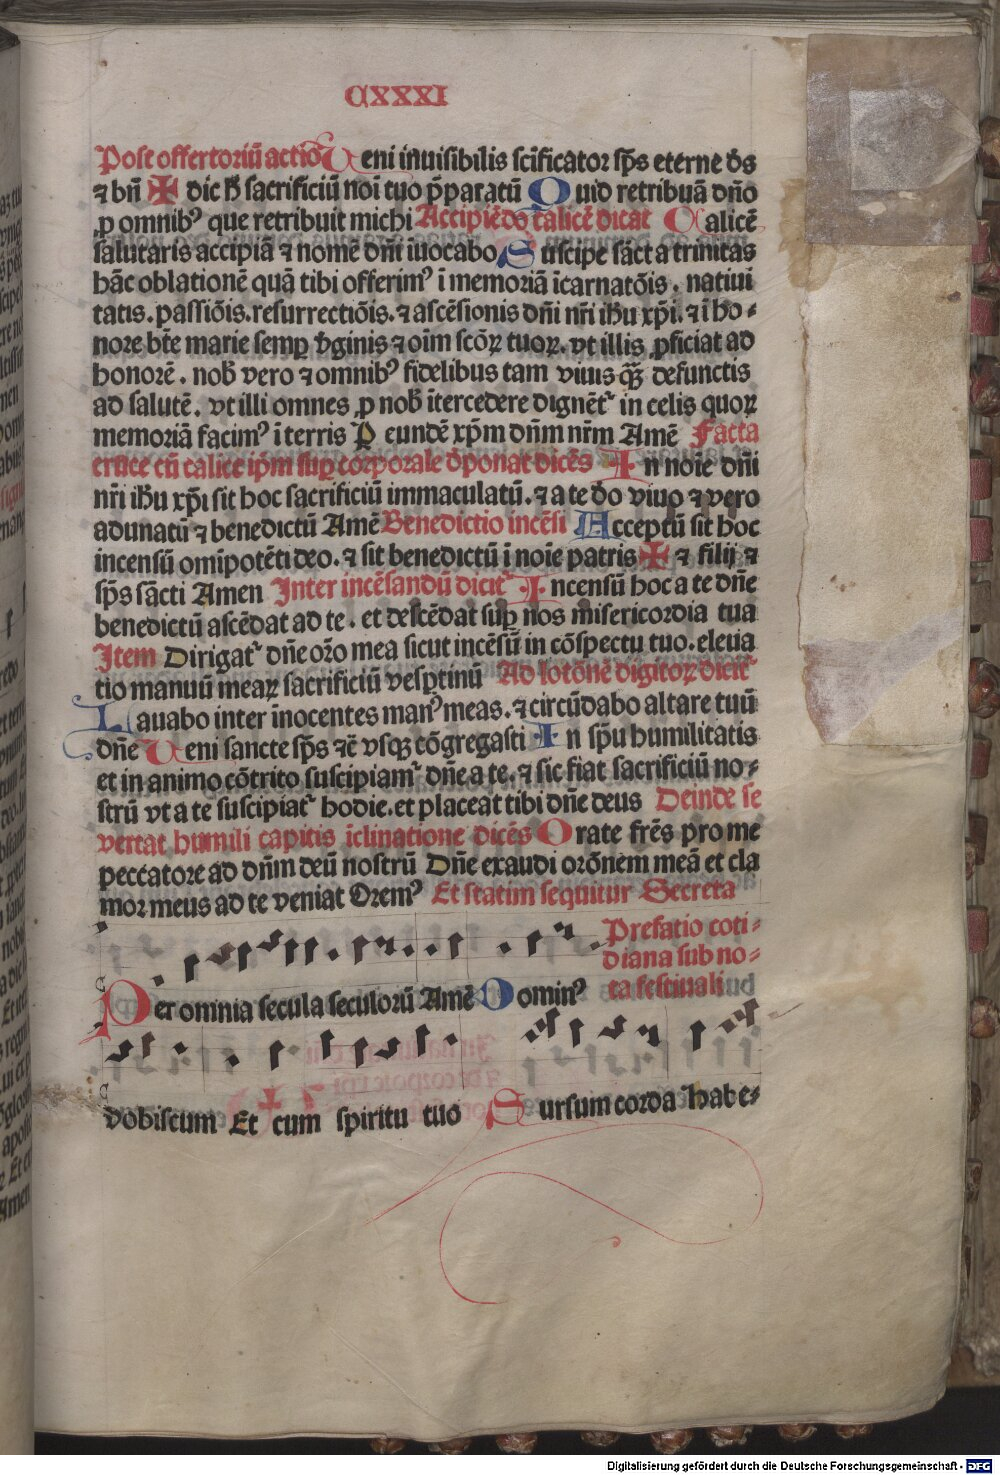 CXXXI
Post offertoriū actio Ueni inuisibilis sc̄ificator sp̄s eterne ds̄
⁊ bn̄ ✠ dic h̄ sacrificiū noī tuo p̄paratū Quid retribuā dn̄o
ꝓ omnibꝰ que retribuit michi Accipiēds calicē dicat Calicē
salutaris accipiā ⁊ nomē dn̄i īuocabo Suscipe sācta trinitas
hāc oblationē quā tibi offerimꝰ ī memoriā īcarnatōis. natiui
tatis. passiōis. resurrectiōis. ⁊ ascēsionis dn̄i nr̄i ih̄u xp̄i. ⁊ ī ho-
nore bt̄e marie semꝑ v̄ginis ⁊ oīm scōꝝ tuoꝝ. vt illis ꝓficiat ad
honorē. nob̄ vero ⁊ omnibꝰ fidelibus tam viuis qꝫ̄ defunctis
ad salutē. vt illi omnes ꝓ nob̄ ītercedere dignēt᷑ in celis quoꝝ
memoriā facimꝰ ī terris P eundē xp̄m dn̄m nr̄m Amē Facta
cruce cū calice ip̄m suꝑ corporale dp̄onat dicēs In noīe dn̄i
nr̄i ih̄u xp̄i sit hoc sacrificiū immaculatū. ⁊ a te do viuo ⁊ vero
adunatū ⁊ benedictū Amē Benedictio incēsi Acceptū sit hoc
incensū omīpotēti deo. ⁊ sit benedictū ī noīe patris ✠ ⁊ filij ⁊
sp̄s sācti Amen Inter incēsandū dicit᷑ Incensū hoc a te dn̄e
benedictū ascēdat ad te. et descēdat suꝑ nos misericordia tua
Item Dirigat᷑ dn̄e or̄o mea sicut incēsū in cōspectu tuo. eleua
tio manuū meaꝝ sacrificiū vesꝑtinū Ad lotōnē digitoꝝ dicit᷑
Lauabo inter īnocentes manꝰ meas. ⁊ circūdabo altare tuū
dn̄e Ueni sancte sp̄s ⁊c̄ vsqꝫ cōgregasti In sp̄u humilitatis
et in animo cōtrito suscipiam᷑ dn̄e a te. ⁊ sic fiat sacrificiū no-
strū vt a te suscipiat᷑ hodie. et placeat tibi dn̄e deus Deinde se
vertat humili capitis īclinatione dicēs Orate frēs pro me
peccatore ad dn̄m deū nostrū Dn̄e exaudi orōnem meā et cla
mor meus ad te veniat Oremꝰ Et statim sequitur Secreta
Prefatio coti-
diana sub no-
ta festiuali
Per omnia secula seculorū Amē Dominꝰ
vobiscum Et cum spiritu tuo Sursum corda Habe-
Digitalisierung gefördert durch die Deutsche Forschungsgemeinschaft - DFG